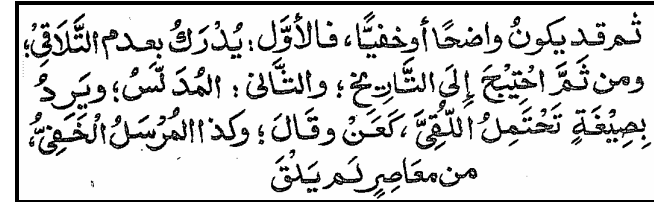 ثم قد يكونُ واضحًا أو خفيًّا، فالأوَّل: يُدْرَكُ بعدم التَّلَاقِيْ؛
ومن ثَمَّ احْتِيْجَ إِلَى التَّارِيخ؛ والثَّانى: المُدَلَّسُ؛ ويَرِدُ
بِصِيْغَةٍ تَحْتَمِلُ اللُّقِىَّ، كَعَنْ وقَالَ؛ وكذا المُرْسَلُ الْخَفِىُّ،
من معَاصِرٍ لَم يَلْقَ